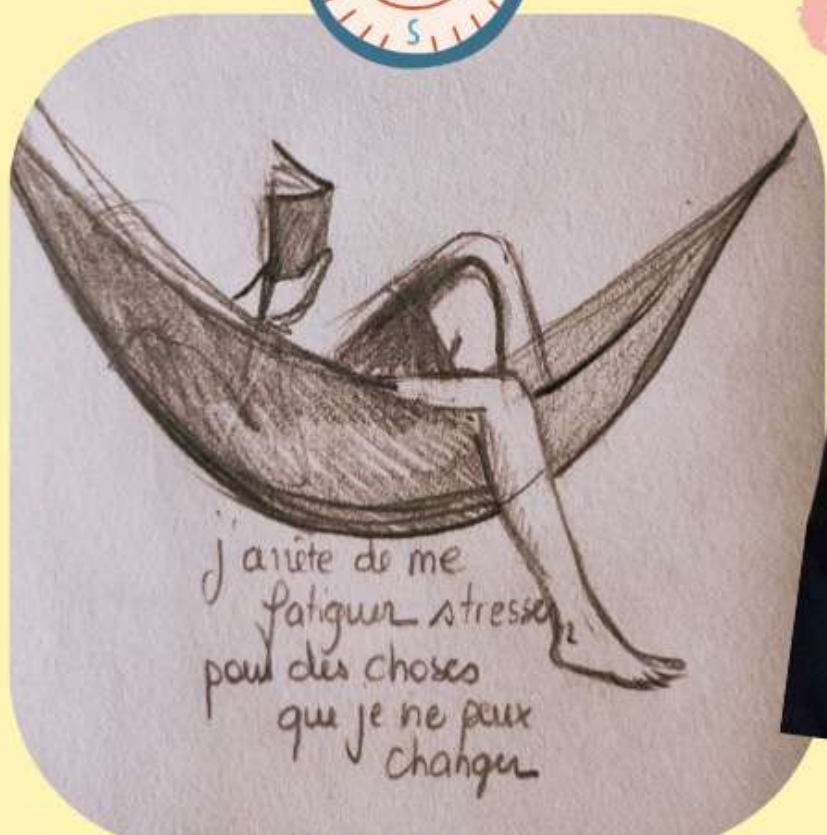 S
j'arrête de me
fatiguer stresser
pour des choses
que je ne peux
changer